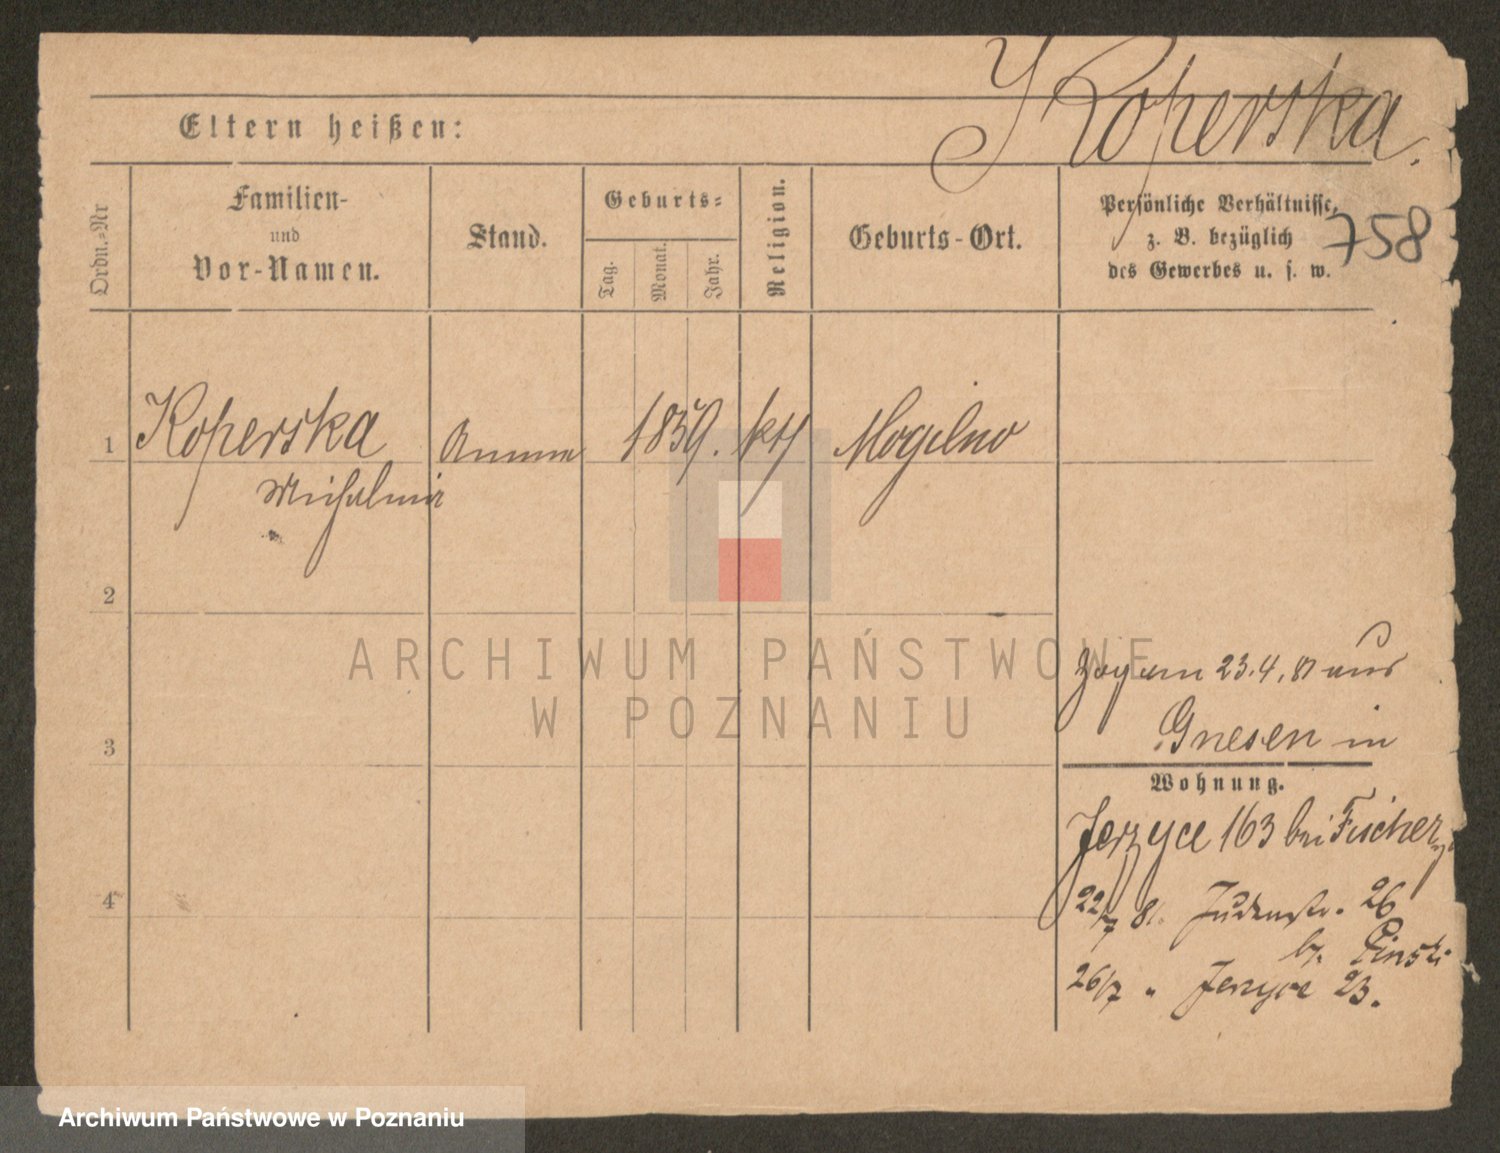 Koperska.
Eltern heißen:
Ordn.-Nr
Familien-
und
Vor-Namen.
Stand.
Geburts-
Tag.
Monat.
Jahr.
Religion.
Geburts-Ort.
Persönliche Verhältnisse,
z. B. bezüglich
des Gewerbes u. s. w.
758
1 Koperska Amme 1859. kth Mogilno
Michalina
2
ARCHIWUM PAŃSTWOWE
W POZNANIU
Zog am 23.4.81 aus
Gnesen in
3
Wohnung.
Jerzyce 163 bei Fischer
4
22/7 81. Judenstr. 26
b. Pinski
26/7 " Jerzyce 23.
Archiwum Państwowe w Poznaniu